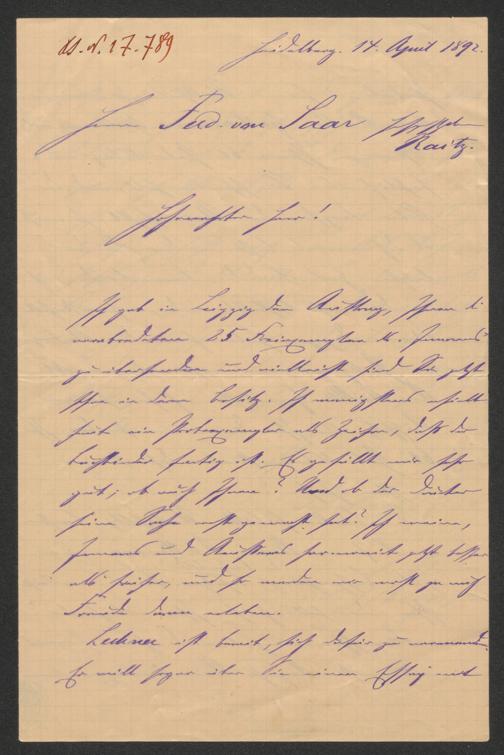 I.N. 17.789
Heidelberg. 14. April 1892.
Herrn Ferd. von Saar
Raitz.
Hochverehrter Herr!
Ich gab in Leipzig den Auftrag, Ihnen die
verabredeten 25 Freiexemplare
zu übersenden und vielleicht sind Sie jetzt
schon in deren Besitz. Ich wenigstens erhielt
heute ein Probeexemplar als Zeichen, daß der
Buchbinder fertig ist. Es gefällt mir sehr
gut; ob auch Ihnen? Und ob der Drucker
seine Sache recht gemacht hat? Ich meine,
Inneres und Äusseres harmonirt jetzt besser
als früher, und so werden wir wohl ja auch
Freude daran erleben.
Lechner ist bereit, sich dafür zu verwenden.
Er will sogar über Sie einen Essay